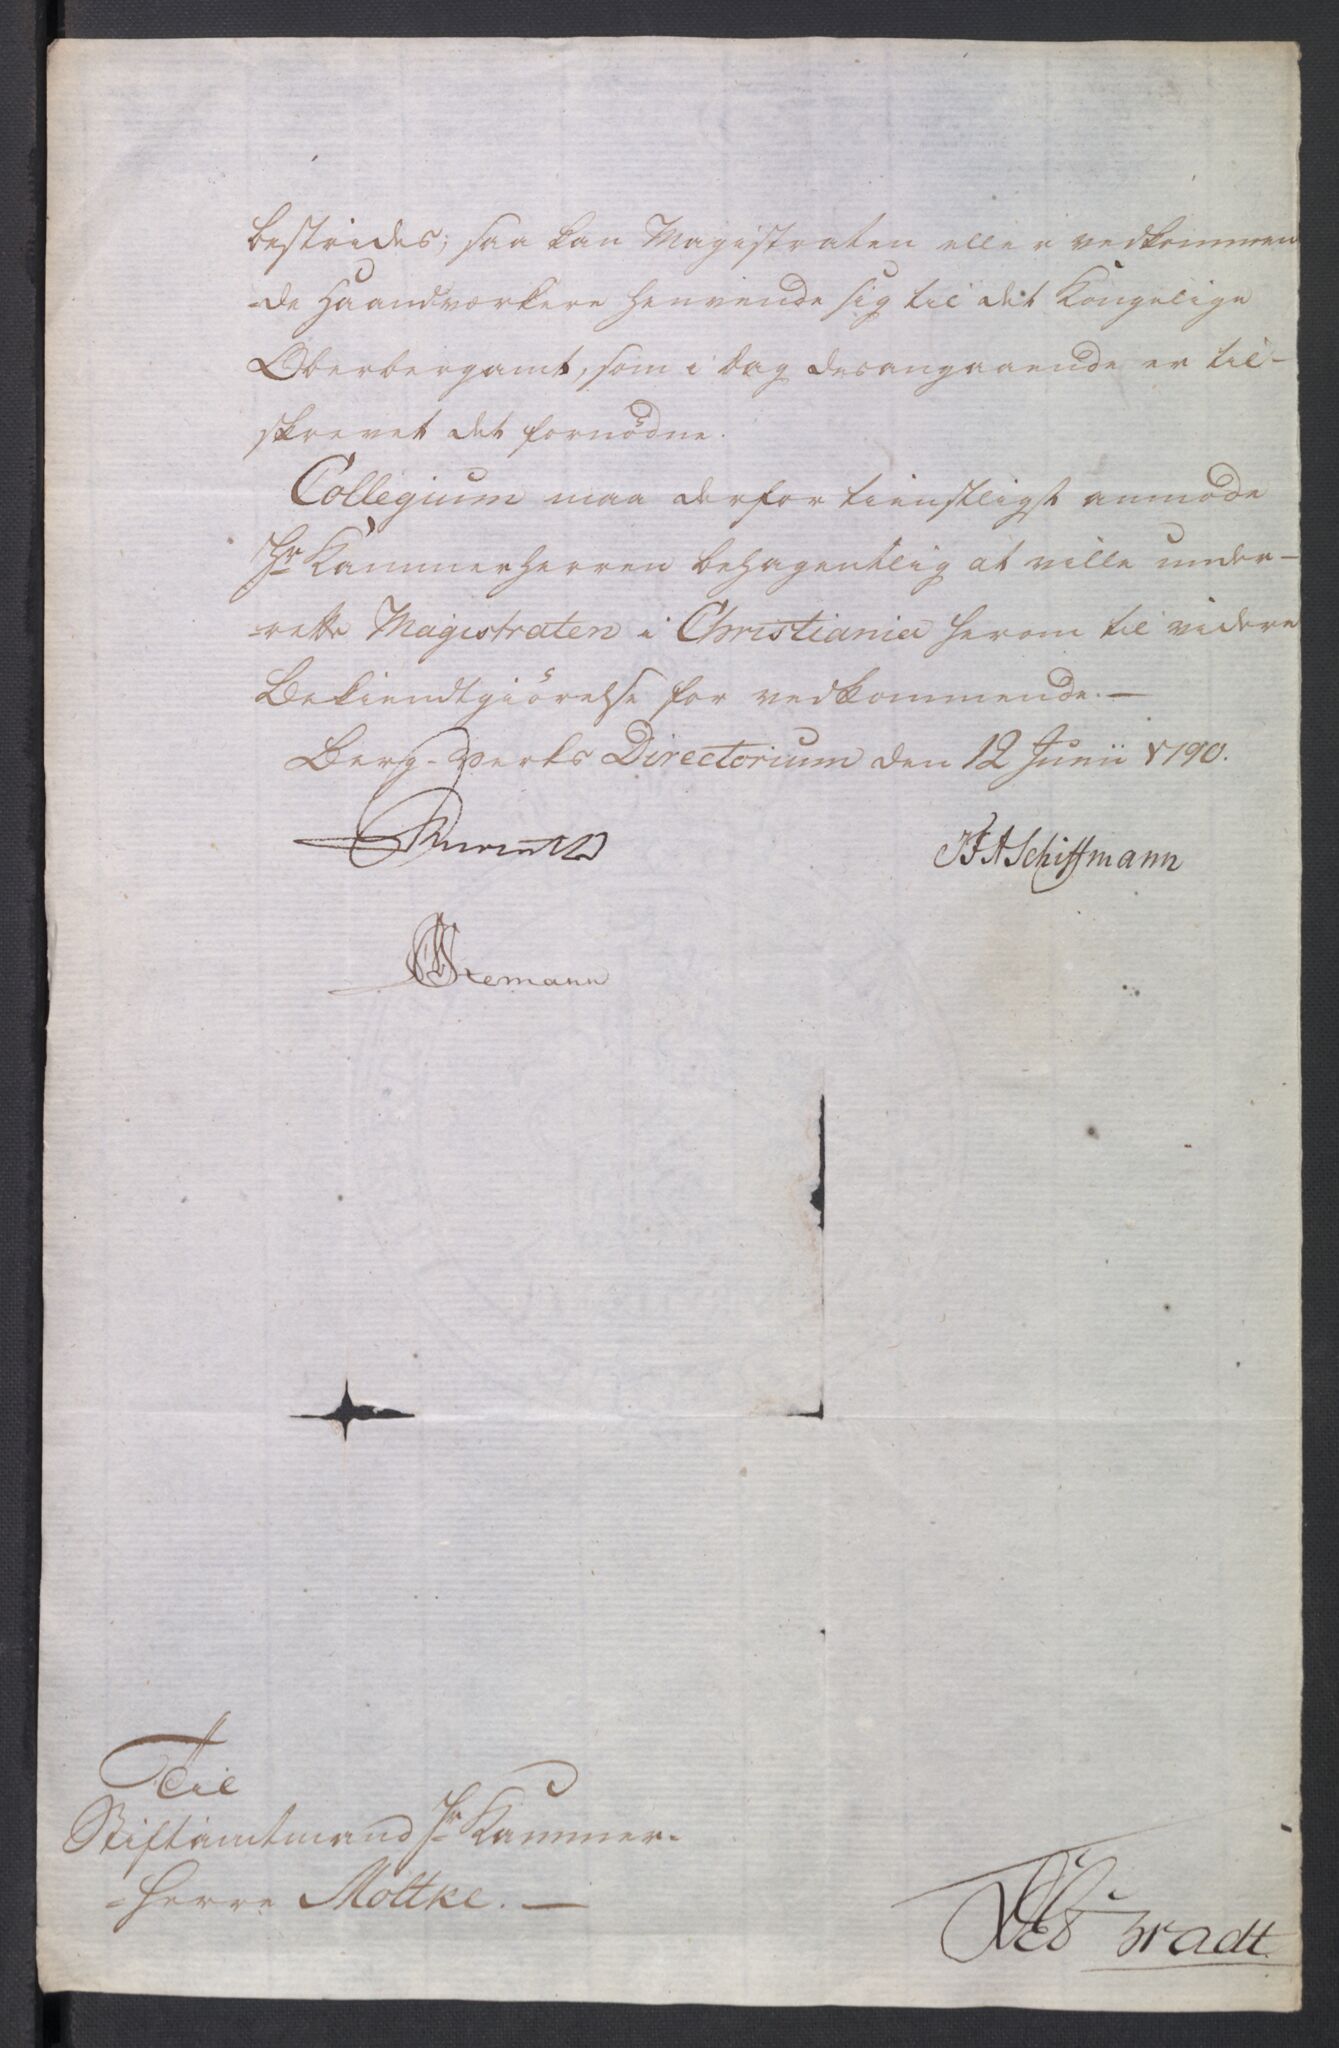 bestrides; saa kan Magistraten eller vedkommen
-de Haandværkere henvende sig til det Kongelige
Oberbergamt, som i dag desangaaende er til-
skrevet det fornødne.
Collegium maa derfor tienstligst anmode
Hr Kammerherren behagentlig at ville under-
-rette Magistraten i Christiania herom til videre
Bekiendtgiörelse for vedkommende.—
Berg-Verks Directorium den 12 Junii 1790.
JFASchiffmann
Til
Stiftamtmand Hr Kammer-
-Herre Moltke.—